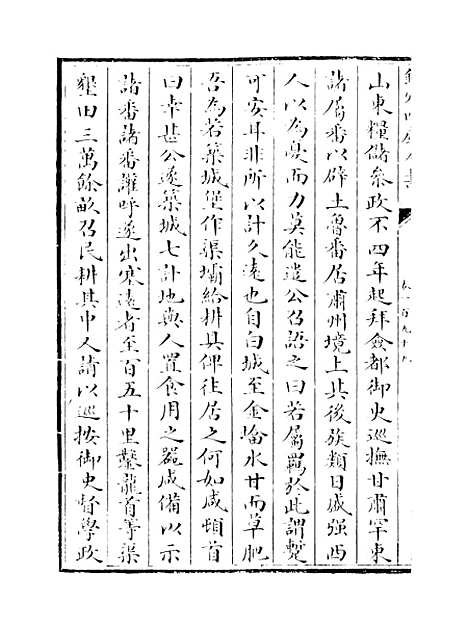 山東糧儲參政不四年起拜僉都御史巡撫甘肅罕東
諸屬番以辟土魯番居肅州境上其後族類日盛强西
人以為憂而力莫能遣公召語之曰若屬羈於此謂蹔
可安耳非所以計久遠也自白城至金㙮水甘而草肥
吾為若築城堡作渠壩給耕具俾往居之何如咸頓首
曰幸甚公遂築城七計地與人置食用之器咸備以示
諸番諸番讙呼遂出塞遠者至百五十里鑿龍首等渠
墾田三萬餘畝召民耕其中人請以巡按御史督學政